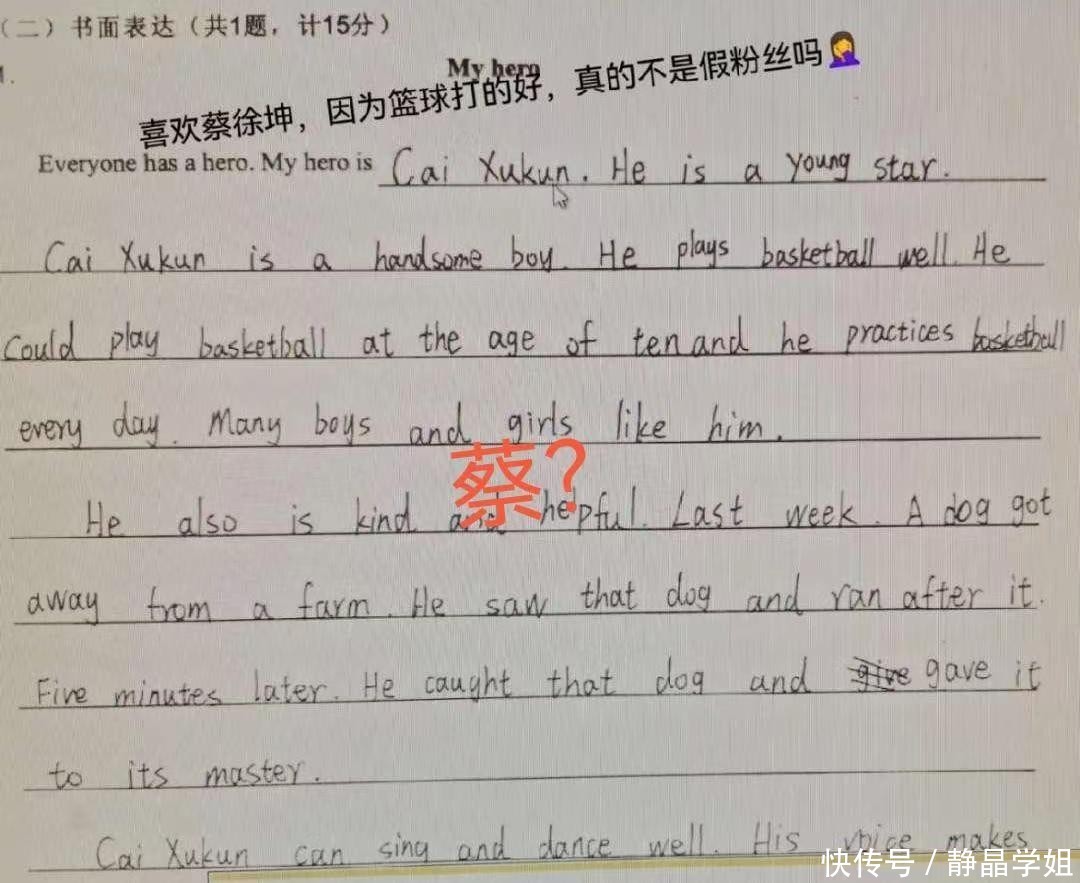 （二）书面表达（共1题，计15分）
My hero
喜欢蔡徐坤，因为篮球打的好，真的不是假粉丝吗🤦‍♀️
Everyone has a hero. My hero is Cai Xukun. He is a young star.
Cai Xukun is a handsome boy. He plays basketball well. He
could play basketball at the age of ten and he practices basketball
every day. Many boys and girls like him.
蔡？
He also is kind and helpful. Last week. A dog got
away from a farm. He saw that dog and ran after it.
Five minutes later. He caught that dog and give gave it
to its master.
Cai Xukun can sing and dance well. His voice makes
快传号 / 静晶学姐